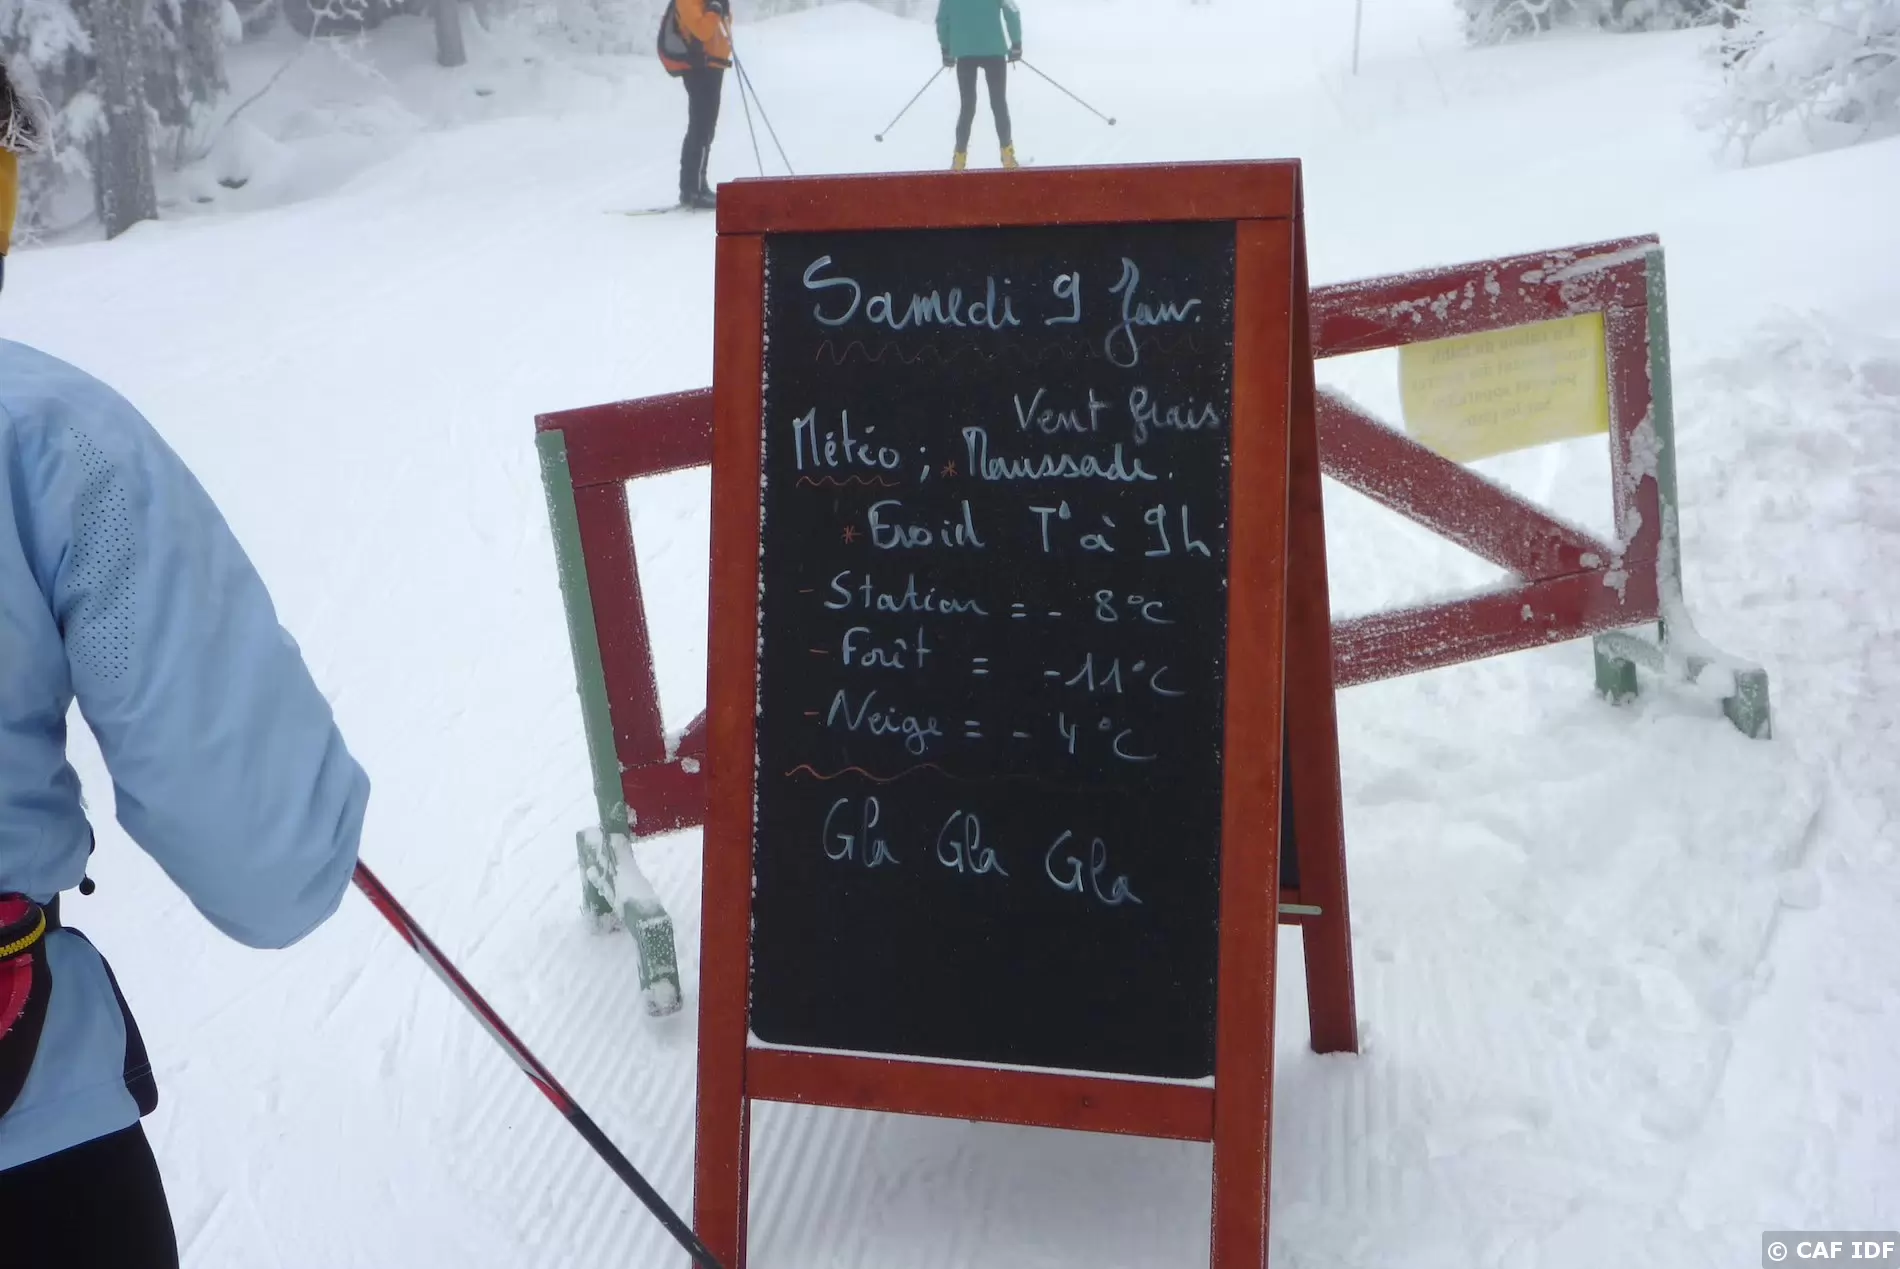 Samedi 9 Janv.
Vent frais
Météo ; * Maussade.
* Froid T° à 9h
- Station = - 8°C
- Forêt = -11°C
- Neige = - 4°C
Gla Gla Gla
© CAF IDF